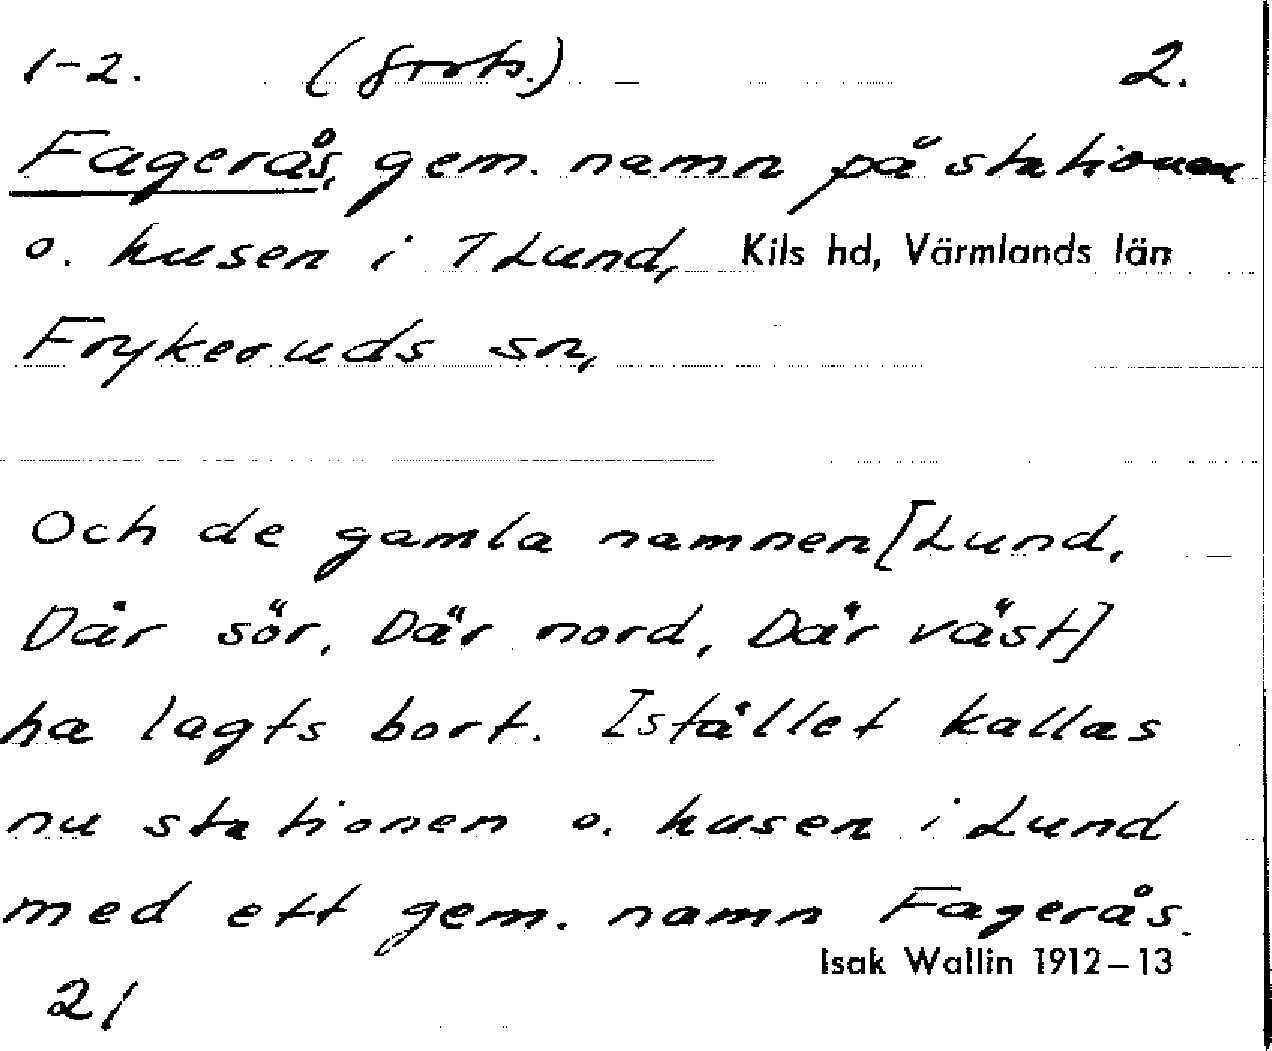 1-2. (forts.) 2.
Fagerås, gem. namn på stationen
o. husen i 7 Lund, Kils hd, Värmlands län
Frykeruds sn,
Och de gamla namnen [Lund,
Där sör, Där nord, Där väst]
ha lagts bort. Istället kallas
nu stationen o. husen i Lund
med ett gem. namn Fagerås.
Isak Wallin 1912–13
21